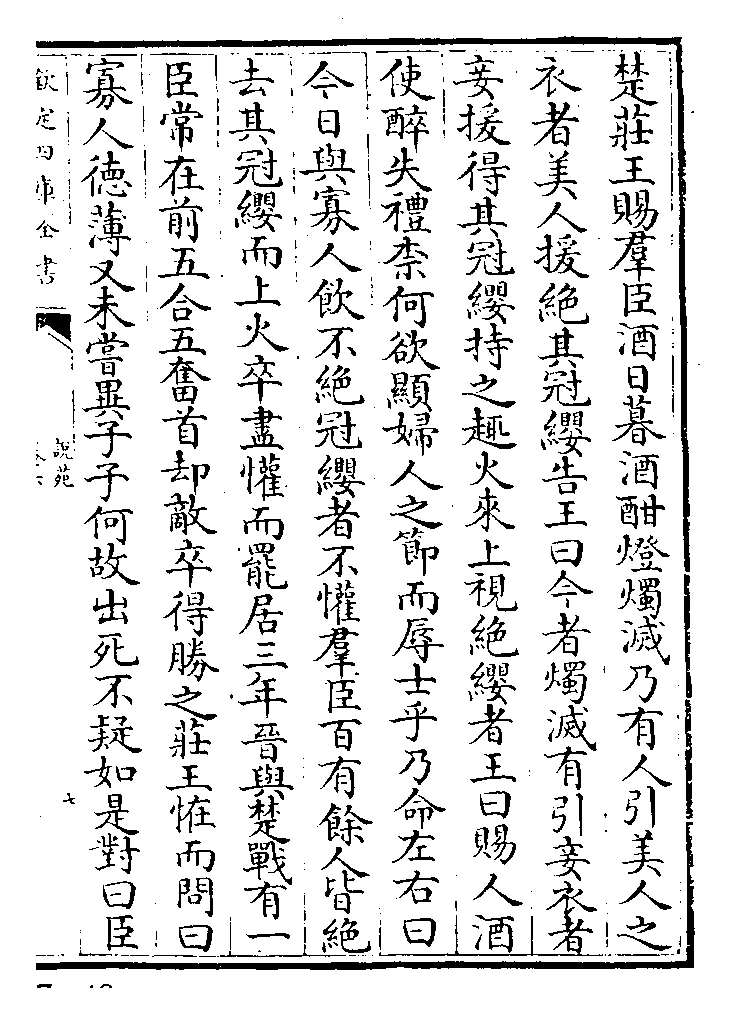 楚莊王賜羣臣酒日暮酒酣燈燭滅乃有人引美人之
衣者美人援絶其冠纓告王曰今者燭滅有引妾衣者
妾援得其冠纓持之趣火來上視絶纓者王曰賜人酒
使醉失禮柰何欲顯婦人之節而辱士乎乃命左右曰
今日與寡人飲不絶冠纓者不懽羣臣百有餘人皆絶
去其冠纓而上火卒盡懽而罷居三年晉與楚戰有一
臣常在前五合五奮首却敵卒得勝之莊王恠而問曰
寡人德薄又未嘗異子子何故出死不疑如是對曰臣
欽定四庫全書
說苑
七